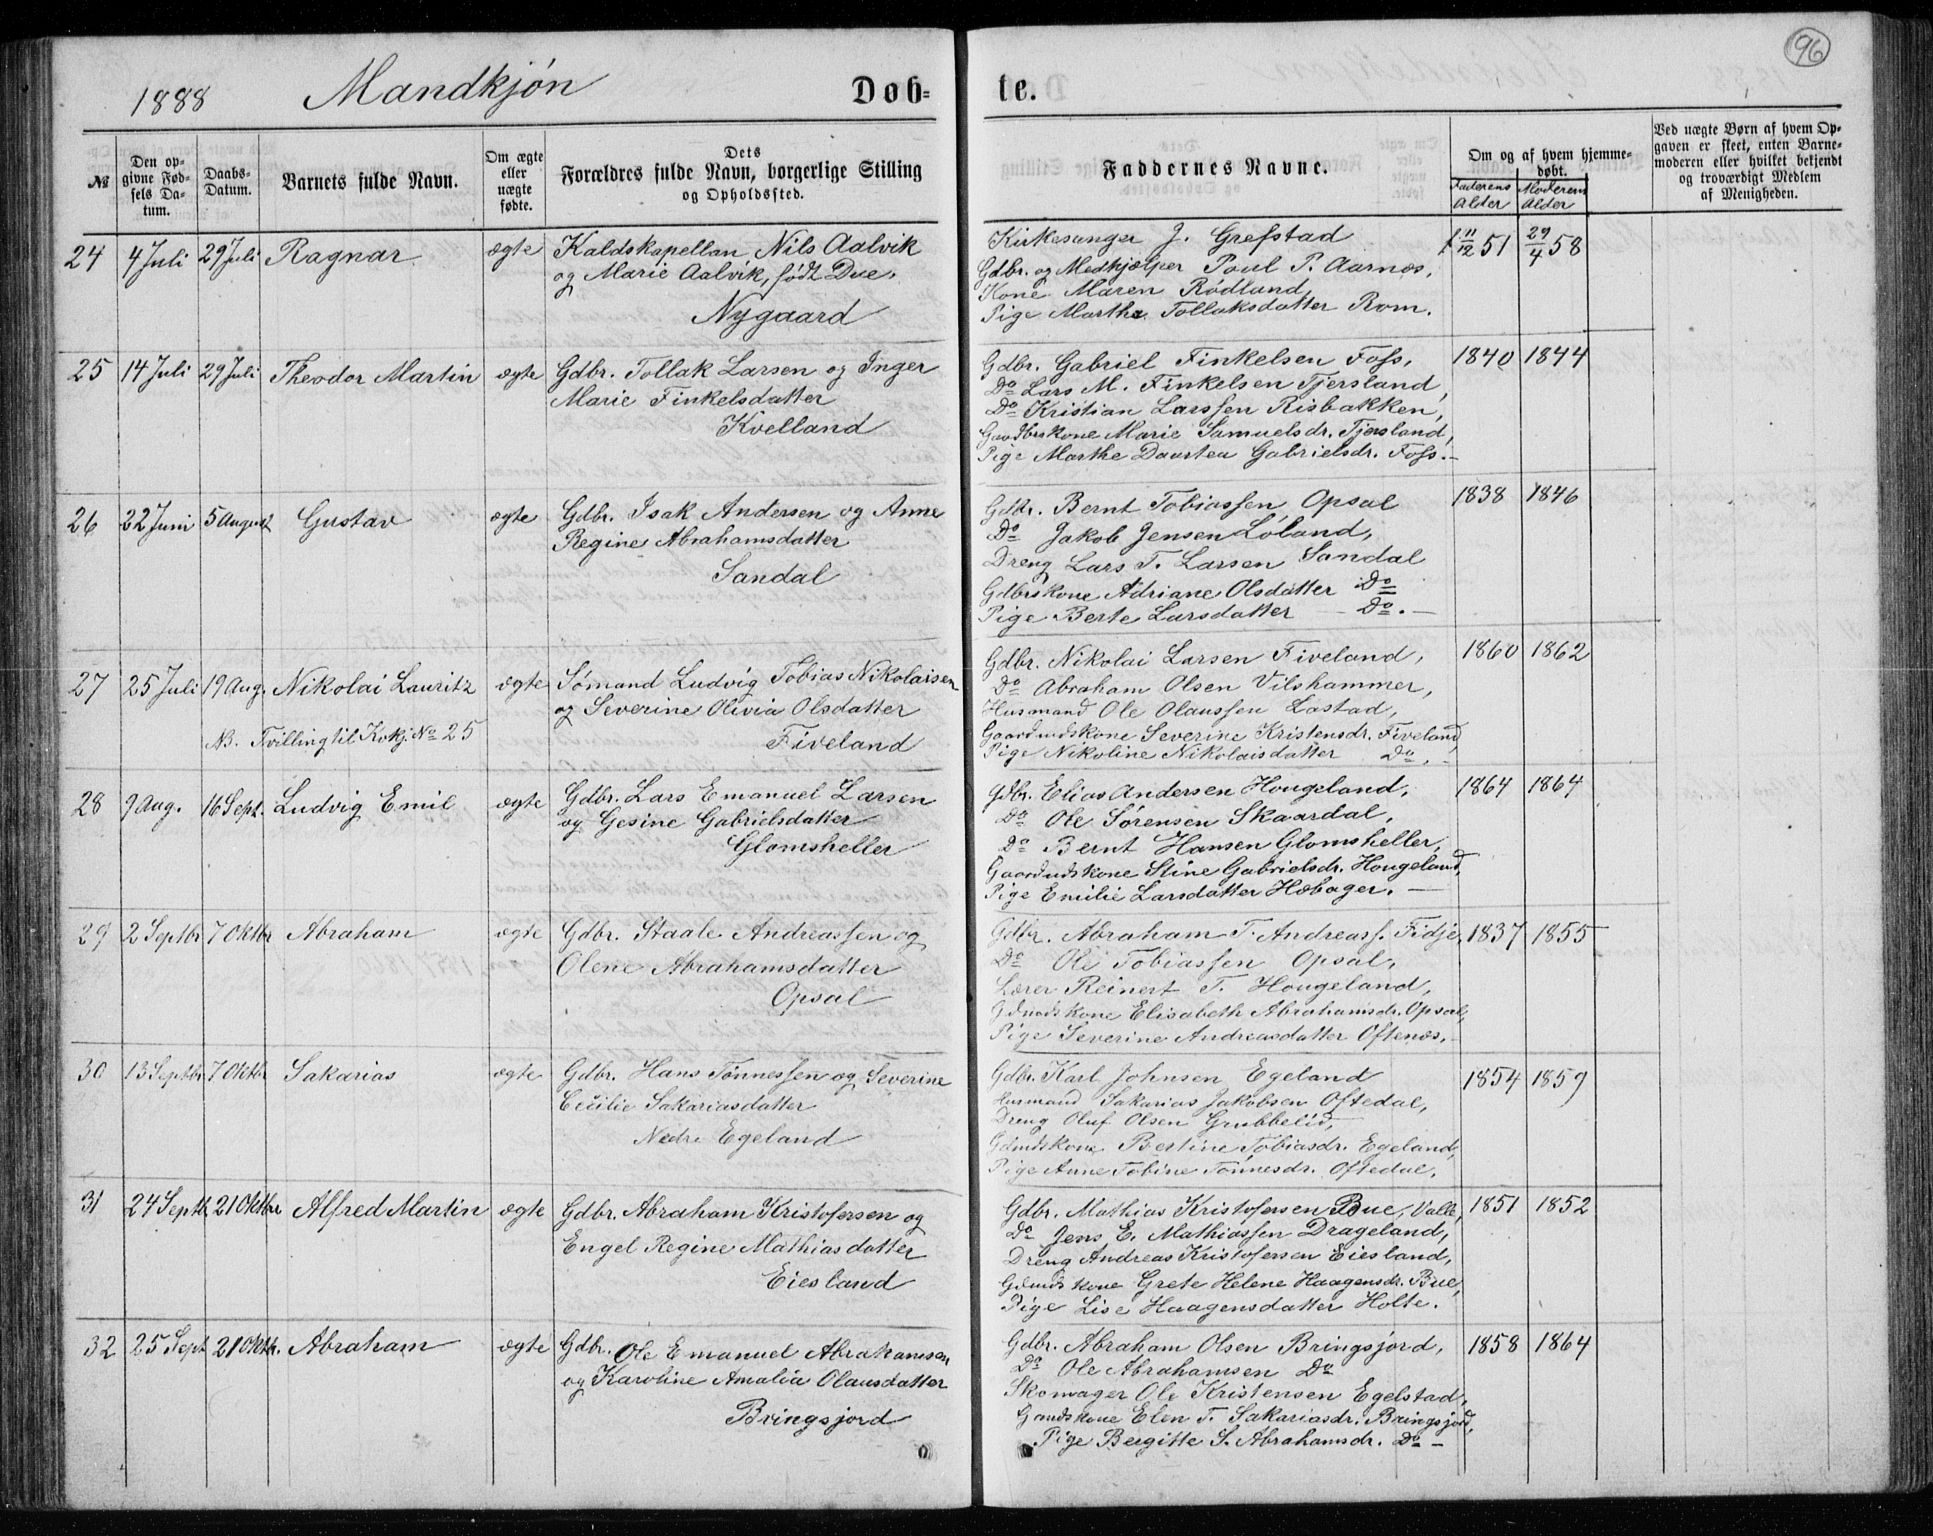 96
1888 Mandkjøn Døb= te.
№
Den op=
givne Fød=
sels Da=
tum.
Daabs=
Datum.
Barnets fulde Navn.
Om ægte
eller
uægte
fødte.
Dets
Forældres fulde Navn, borgerlige Stilling
og Opholdssted.
Faddernes Navne.
Om og af hvem hjemme=
døbt.
Faderens Alder
Moderens Alder
Ved uægte Børn af hvem Op=
gaven er skeet, enten Barne=
moderen eller hvilket bekjendt
og troværdigt Medlem
af Menigheden.
24 4 Juli 29 Juli Ragnar ægte
Kaldskapellan Nils Aalvik
og Marie Aalvik, født Due.
Nygaard
Kirkesanger J. Grefstad
Gdbr. og Medhjælper Poul P. Aarnæs,
Kone Maren Rødland
Pige Marthe Tollaksdatter Rom.
11/12 51 29/4 58
25 14 Juli 29 Juli Theodor Martin ægte
Gdbr. Tollak Larsen og Inger
Marie Finkelsdatter
Kvelland
Gdbr. Gabriel Finkelsen Foss,
Do Lars M. Finkelsen Tjersland,
Do Kristian Larssen Risbakken,
Gaardbrskone Marie Samuelsdr. Tjersland,
Pige Marthe Daartea Gabrielsdr. Foss.-
1840 1844
26 22 Juni 5 August Gustav ægte
Gdbr. Isak Andersen og Anne
Regine Abrahamsdatter
Sandal
Gdbr. Bernt Tobiassen Opsal
Do Jakob Jensen Løland,
Dreng Lars T. Larsen Sandal
Gdbrskone Adriane Olsdatter Do
Pige Berte Larsdatter - Do. -
1838 1846
27 25 Juli 19 Aug. Nikolai Lauritz ægte
NB. Tvilling til Kvkj. No 25
Sømand Ludvig Tobias Nikolaisen
og Severine Olivia Olsdatter
Fiveland
Gdbr. Nikolai Larsen Fiveland,
Do Abraham Olsen Vilshammer,
Husmand Ole Olaussen Lastad,
Gaardmdskone Severine Kristensdr. Fiveland,
Pige Nikoline Nikolaisdatter Do. -
1860 1862
28 9 Aug. 16 Sept. Ludvig Emil ægte
Gdbr. Lars Emanuel Larsen
og Gesine Gabrielsdatter
Glomsheller
Gdbr. Elias Andersen Hougeland,
Do Ole Sørensen Skaardal,
Do Bernt Hansen Glomsheller,
Gaardmdskone Stine Gabrielsdr. Hougeland,
Pige Emilie Larsdatter Høbager. -
1864 1864
29 2 Septbr 7 Oktbr Abraham ægte
Gdbr. Staale Andreassen og
Olene Abrahamsdatter
Opsal
Gdbr. Abraham T. Andreass. Fidje,
Do Ole Tobiassen Opsal,
Lærer Reinert T. Hougeland,
Gdmdskone Elisabeth Abrahamsdr. Opsal,
Pige Severine Andreasdatter Oftenæs.
1837 1855
30 13 Septbr 7 Oktbr Sakarias ægte
Gdbr. Hans Tønnessen og Severine
Cecilie Sakariasdatter
Nedre Egeland
Gdbr. Karl Johnsen Egeland
Husmand Sakarias Jakobsen Oftedal,
Dreng Oluf Olsen Grubbelid,
Gdmdskone Bertine Tobiasdr. Egeland,
Pige Anne Tobine Tønnesdr. Oftedal.
1854 1859
31 24 Septb 21 Oktbr Alfred Martin ægte
Gdbr. Abraham Kristofersen og
Engel Regine Mathiasdatter
Eiesland
Gdbr. Mathias Kristofersen Bue, Valle,
Do Jens E. Mathiassen Drageland,
Dreng Andreas Kristofersen Eiesland,
Gdmdskone Grete Helene Haagensdr. Bue,
Pige Lise Haagensdatter Holte.
1851 1852
32 25 Sept 21 Oktbr. Abraham ægte
Gdbr. Ole Emanuel Abrahamsen
og Karoline Amalia Olausdatter
Bringsjord
Gdbr. Abraham Olsen Bringsjord,
Do Ole Abrahamsen Do
Skomager Ole Kristensen Egelstad,
Gmdskone Elen T. Sakariasdr. Bringsjord,
Pige Bergitte S. Abrahamsdr. Do -
1858 1864